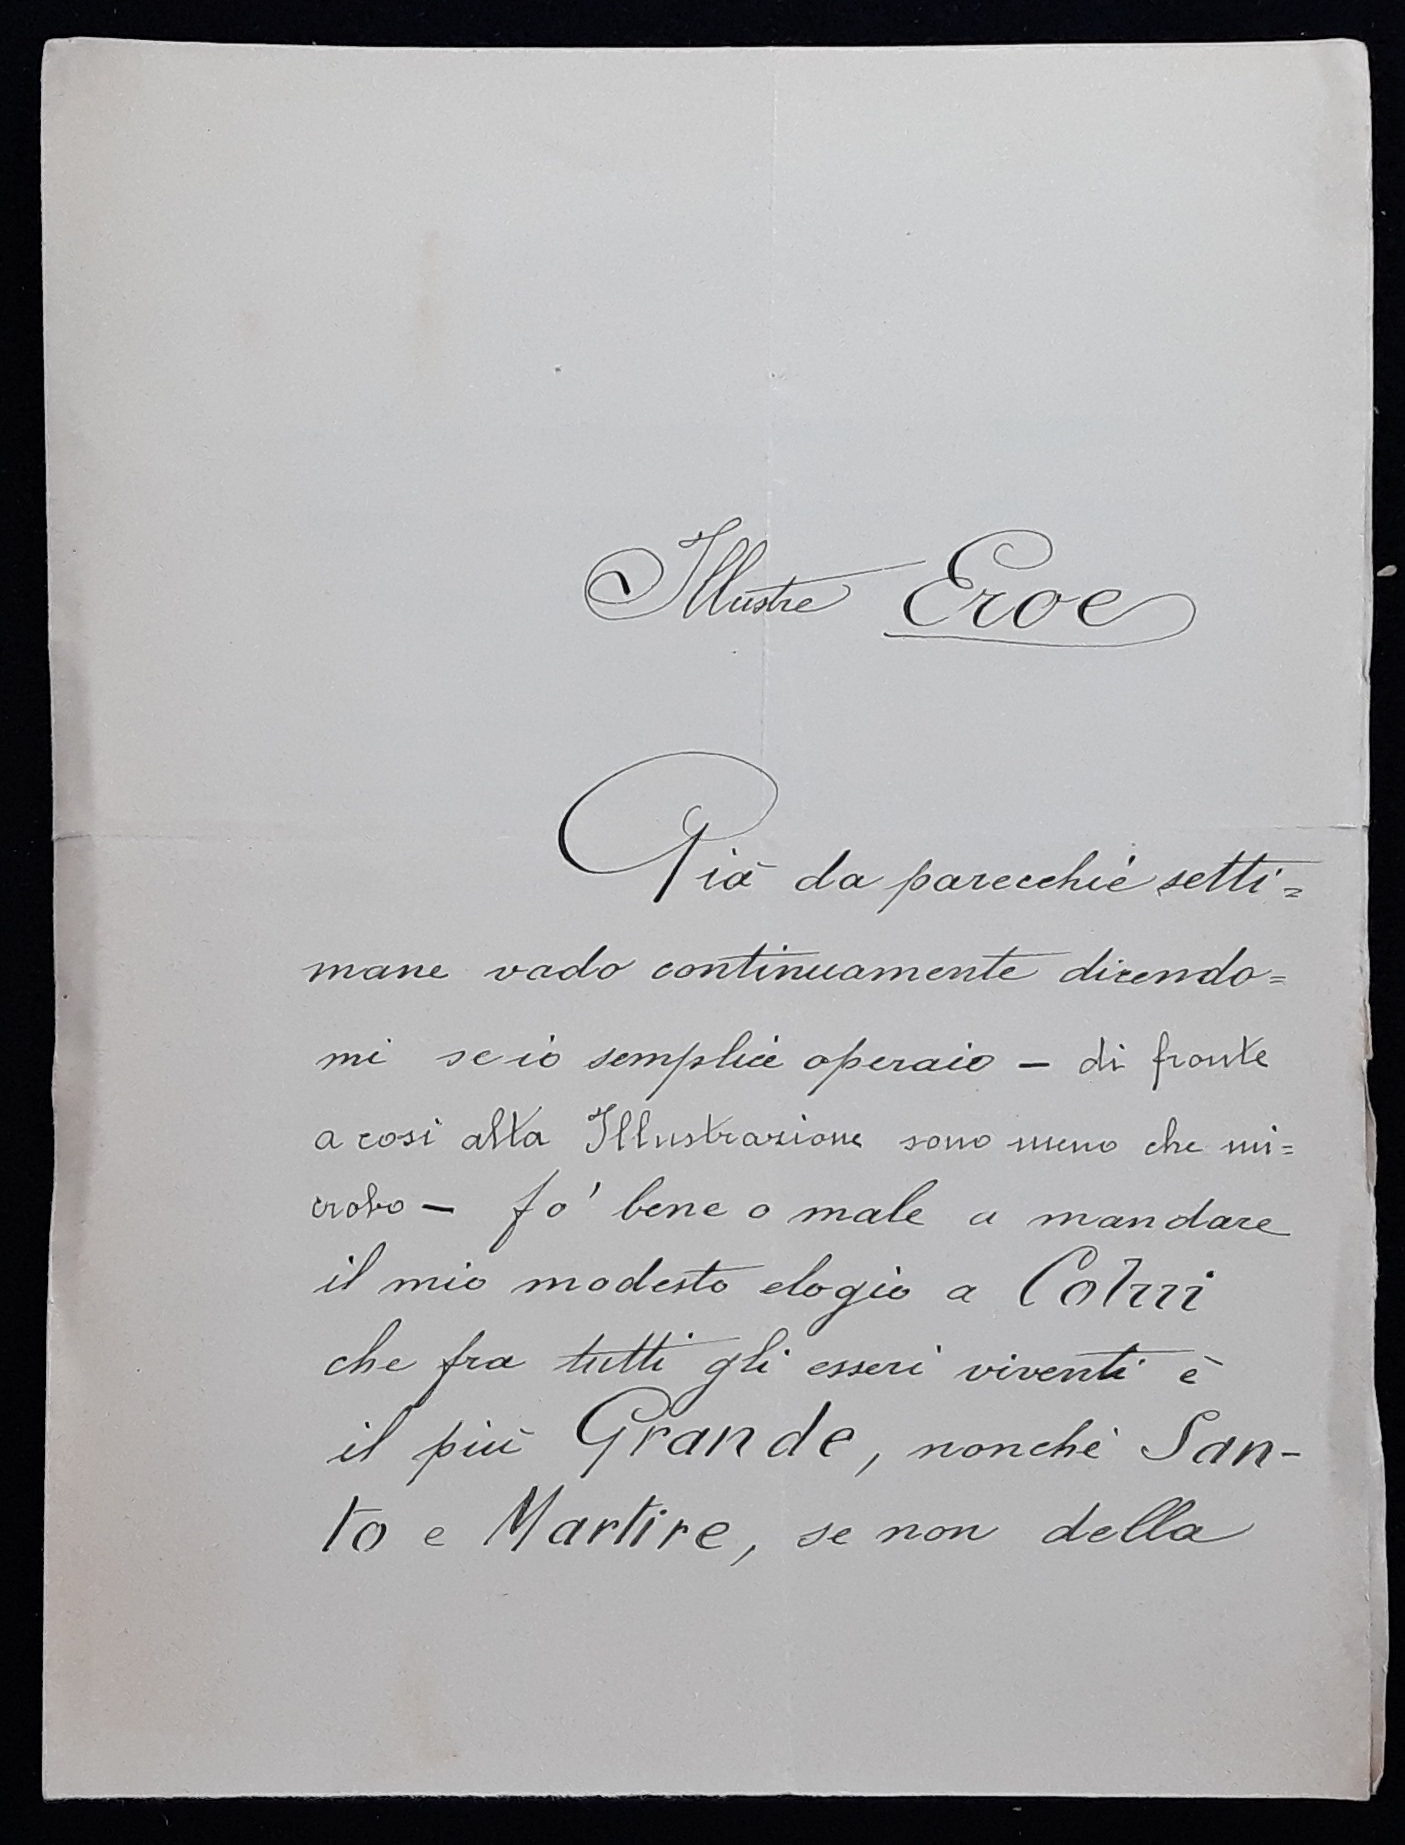 Illustre Eroe
Già da parecchie setti=
mane vado continuamente dicendo=
mi se io semplice operaio – di fronte
a cosi alta Illustrazione sono meno che mi=
crobo – fo' bene o male a mandare
il mio modesto elogio a Colui
che fra tutti gli esseri viventi è
il più Grande, nonchè San-
to e Martire, se non della